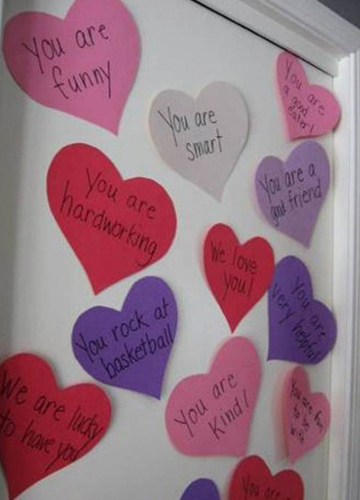 You are
funny
You are
a good
eater!
You are
smart
You are a
good friend
You are
hardworking
We love
you!
You are
very helpful
You rock at
basketball
You are
Kind!
You are fun
to be
with
We are lucky
to have you
You are